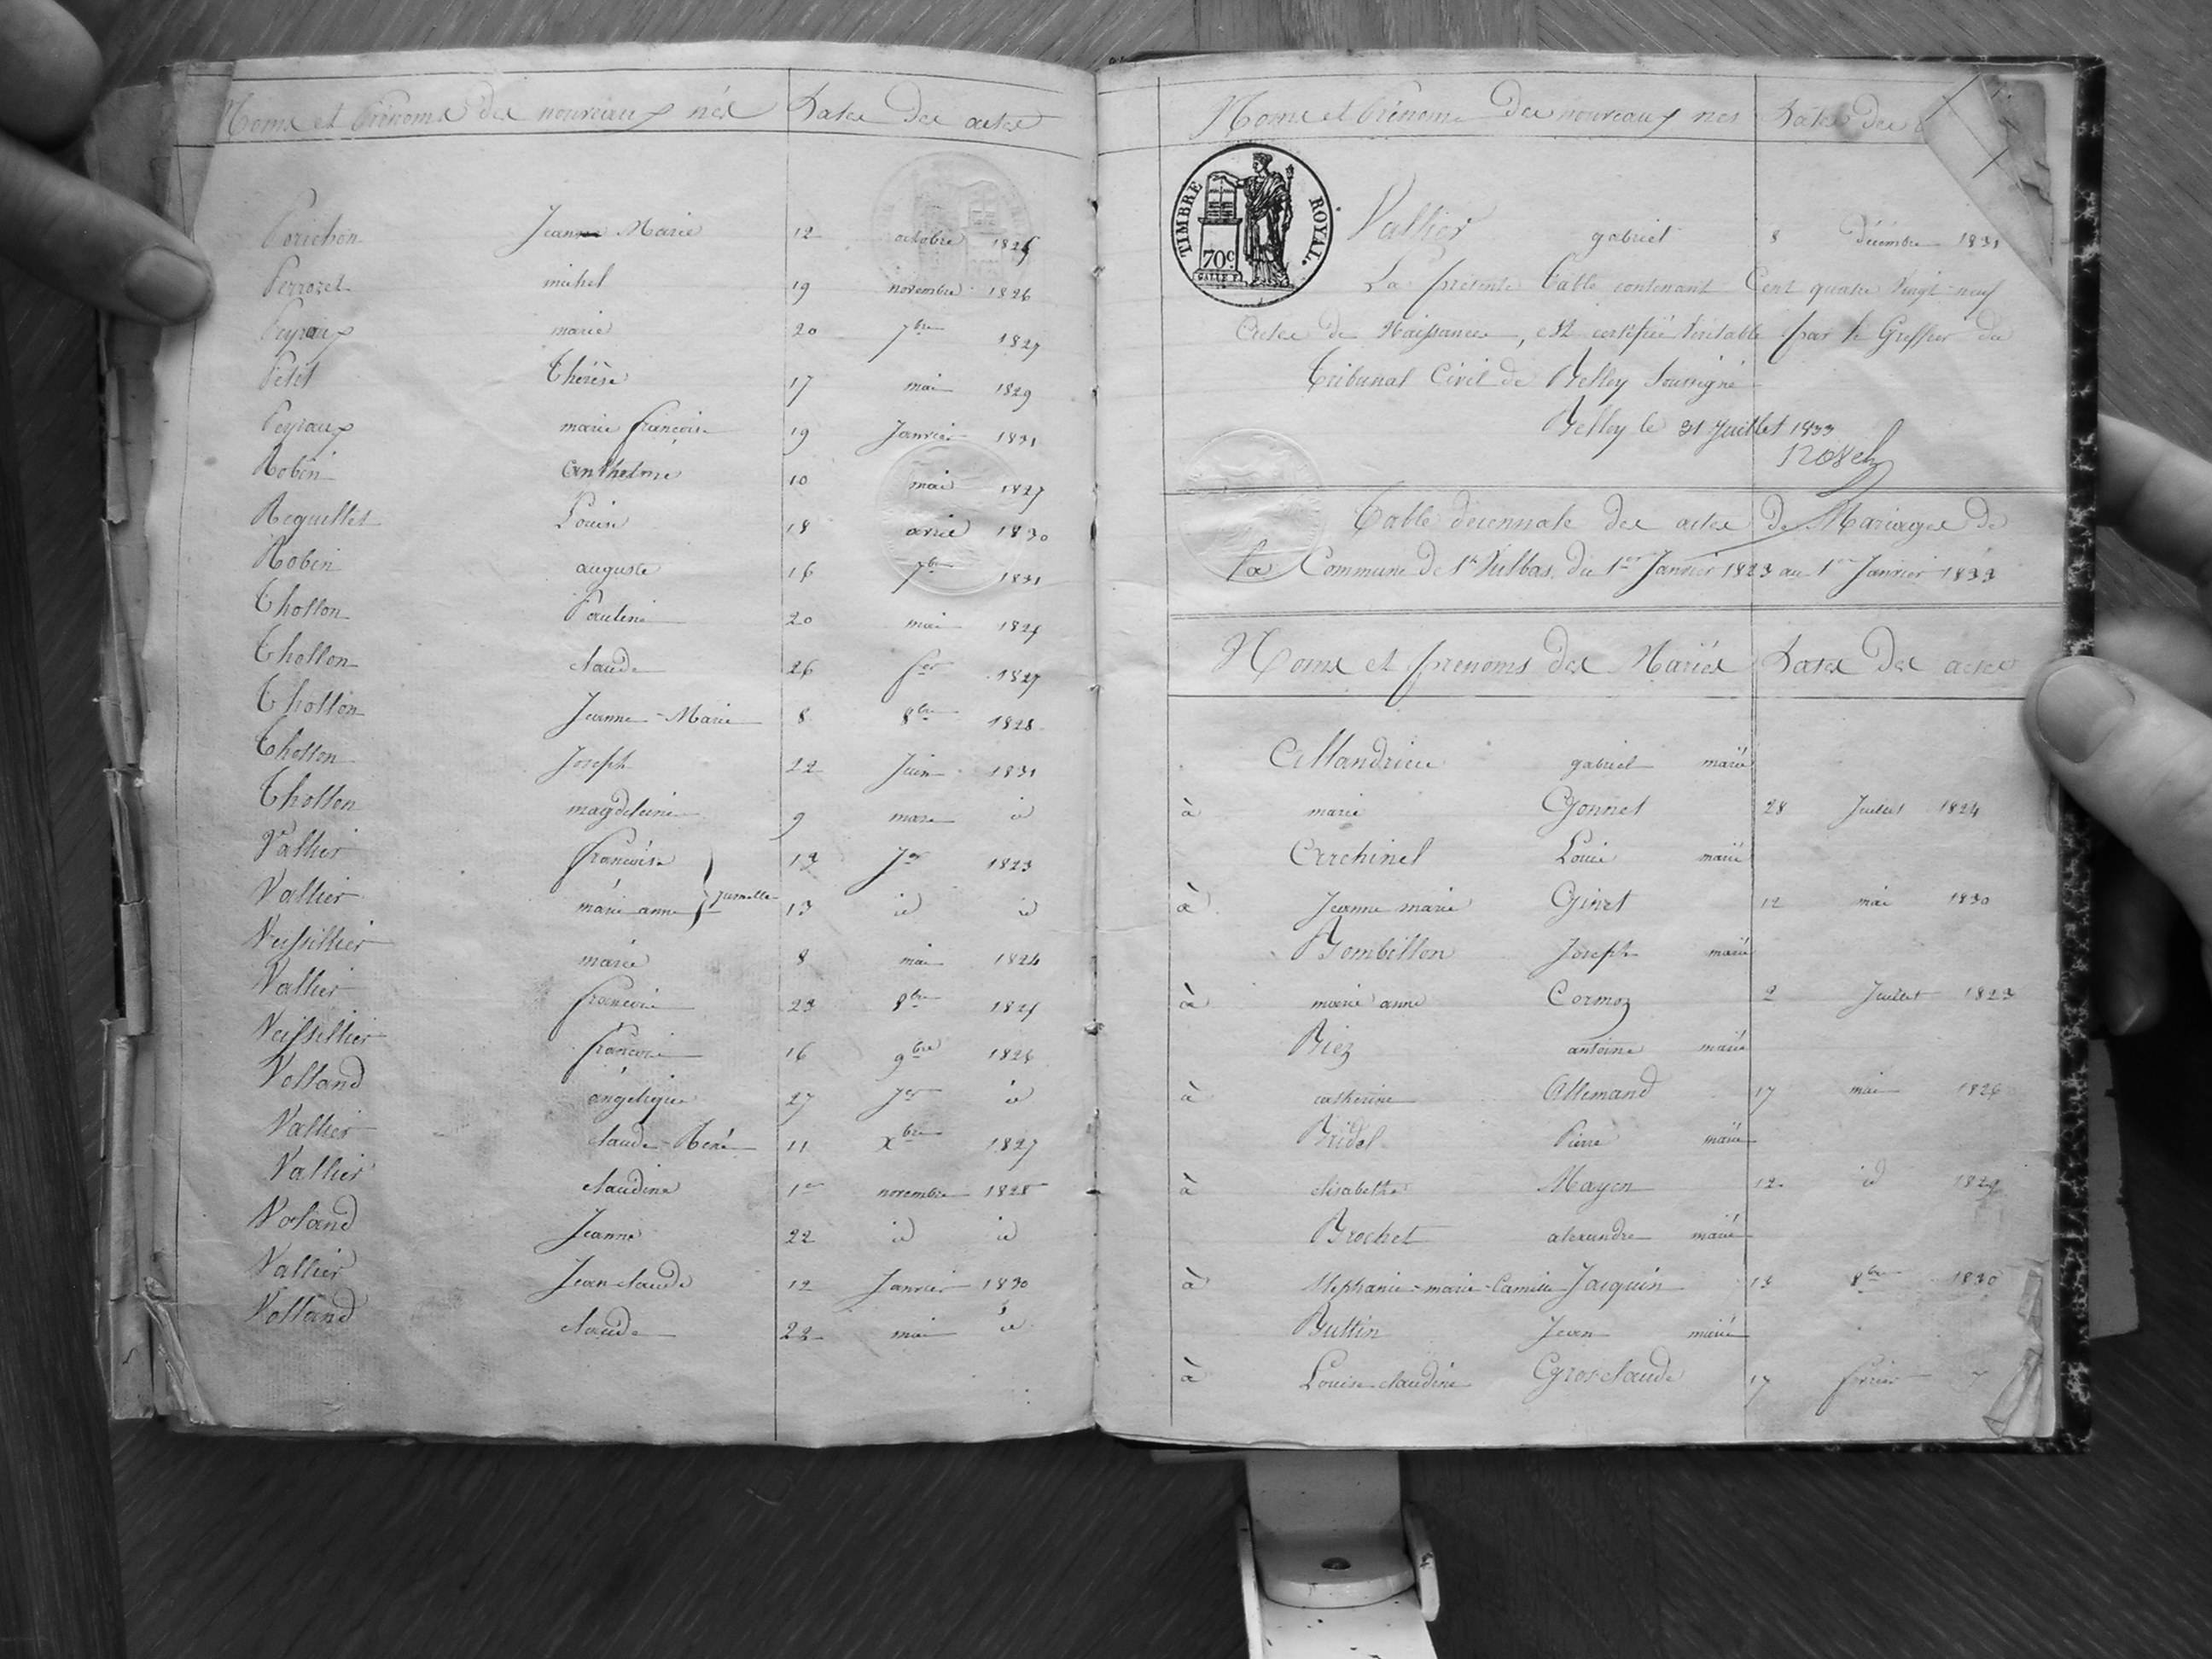 Noms et Prénoms des nouveaux nés Dates des actes
Perichon Jeanne Marie 12 octobre 1825
Perrozet michel 19 novembre 1826
Peyraux marie 20 7bre 1827
Petit Thérèse 17 mai 1829
Peyraux marie françoise 19 Janvier 1831
Robin anthelme 10 mai 1827
Reguillet Louise 18 avril 1830
Robin auguste 16 7bre 1831
Thollon Pauline 20 mai 1825
Thollon claude 26 fer 1827
Thollon Jeanne-Marie 8 8bre 1828
Thollon Joseph 22 Juin 1831
Thollon magdeleine 9 mars id
Vallier françoise 13 Jer 1823
Vallier marie anne Jumelles 13 id id
Veissillier marie 8 mai 1824
Vallier francois 23 8bre 1825
Veissillier francois 16 9bre 1826
Volland angélique 27 Jer id
Vallier claude-René 11 xbre 1827
Vallier claudine 1er novembre 1828
Voland Jeanne 22 id id
Vallier Jean claude 12 Janvier 1830
Volland claude 22 mai id
Noms et Prénoms des nouveaux nés Dates des
TIMBRE ROYAL.
70c
Vallier gabriel 8 décembre 1831
La présente Table contenant Cent quatre Vingt-neuf
actes de Naissances, est certifiée véritable par le Greffier du
Tribunal Civil de Belley soussigné
Belley le 31 Juillet 1833
Table décennale des actes de Mariages de
la Commune de St Vulbas du 1er Janvier 1823 au 1er Janvier 1833
Noms et prénoms des Mariés Dates des actes
Allandrieu gabriel marié
à marie Gonnet 28 Juillet 1824
Archinet Louis marié
à Jeanne marie Ginet 12 mai 1830
Bombillon Joseph marié
à marie anne Cormoz 2 Juillet 1823
Biez antoine marié
à catherine Allemand 17 mai 1826
Bridel Pierre marié
à elisabeth Mayen 12 id 1829
Brochet alexandre marié
à Stephanie-marie-Camille Jacquin 13 8bre 1830
Buttin Jean marié
à Louise claudine Grosclaude 17 février